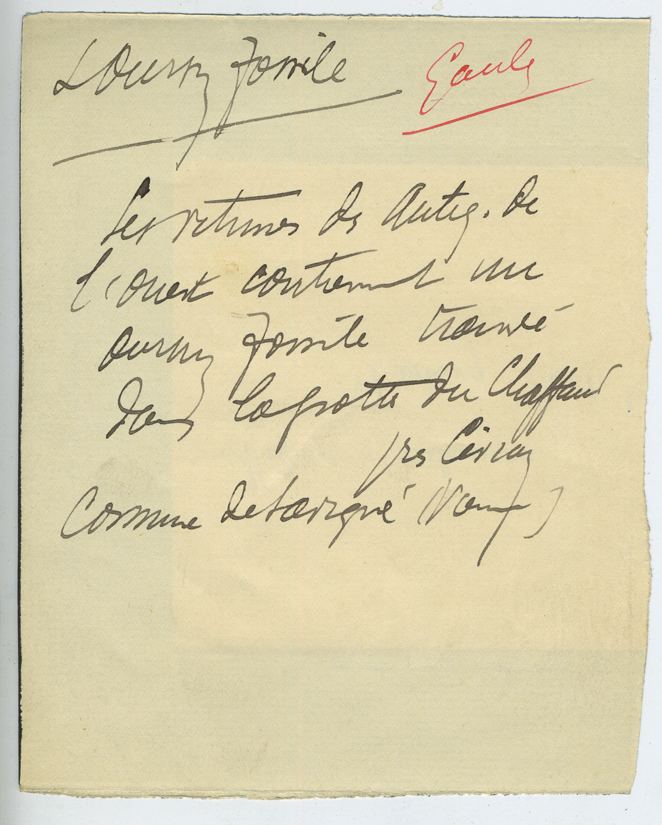 L'Ours fossile Gaule
Les vitrines des Antiq. de
l'ouest contiennent un
ours fossile trouvé
dans la grotte du Chaffaud
près Civray
Commune de Savigné (Vienne)